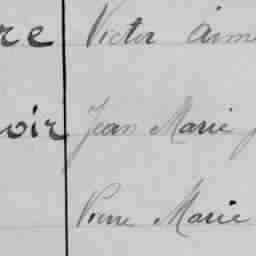 re Victor Aimé
oir Jean Marie
Pierre Marie